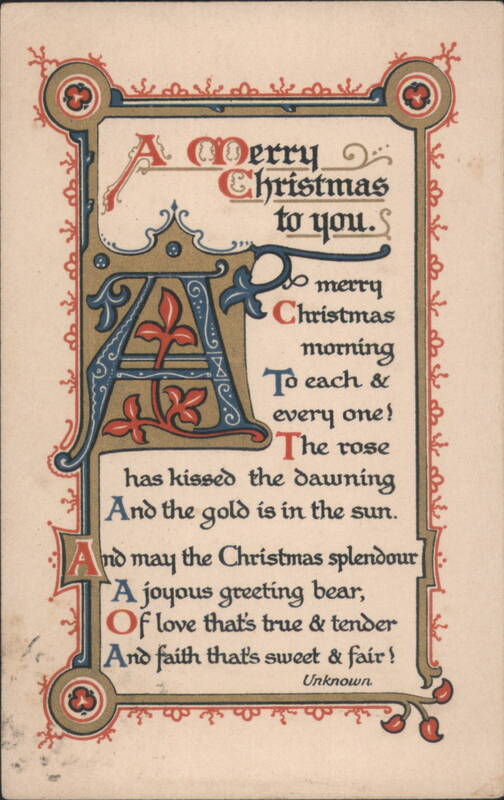 A Merry
Christmas
to you.
A merry
Christmas
morning
To each &
every one!
The rose
has kissed the dawning
And the gold is in the sun.
And may the Christmas splendour
A joyous greeting bear,
Of love that's true & tender
And faith that's sweet & fair!
Unknown.